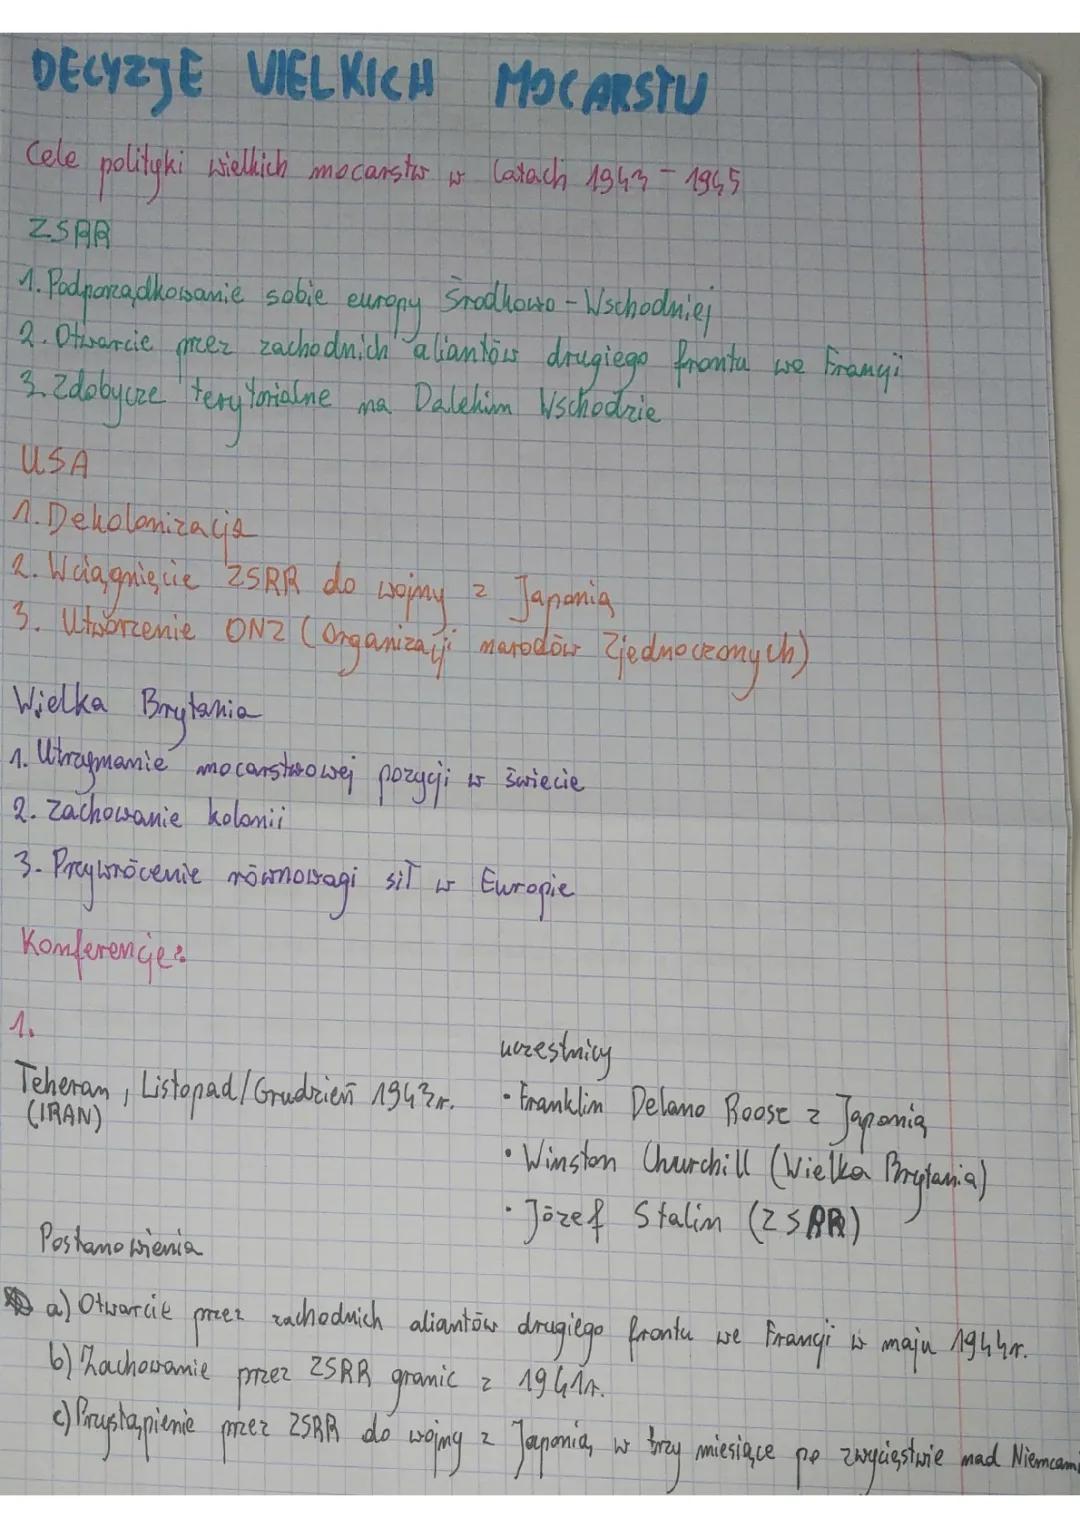 DECYZJE WIELKICH MOCARSTW
Cele polityki wielkich mocarstw w latach 1943-1945
ZSRR
1. Podporządkowanie sobie europy Środkowo-Wschodniej
2. Otwarcie przez zachodnich aliantów drugiego frontu we Francji
3. Zdobycze terytorialne na Dalekim Wschodzie
USA
1. Dekolonizacja
2. Wciągnięcie ZSRR do wojny z Japonią
3. Utworzenie ONZ (Organizacji narodów Zjednoczonych)
Wielka Brytania
1. Utrzymanie mocarstwowej pozycji w świecie
2. Zachowanie kolonii
3. Przywrócenie równowagi sił w Europie
Konferencje:
1.
Teheran, Listopad/Grudzień 1943r.
(IRAN)
uczestnicy
• Franklin Delano Roose z Japonią
• Winston Churchill (Wielka Brytania)
• Józef Stalin (ZSRR)
Postanowienia
a) Otwarcie przez zachodnich aliantów drugiego frontu we Francji w maju 1944r.
b) Zachowanie przez ZSRR granic z 1941r.
c) Przystąpienie przez ZSRR do wojny z Japonią w trzy miesiące po zwycięstwie nad Niemcami